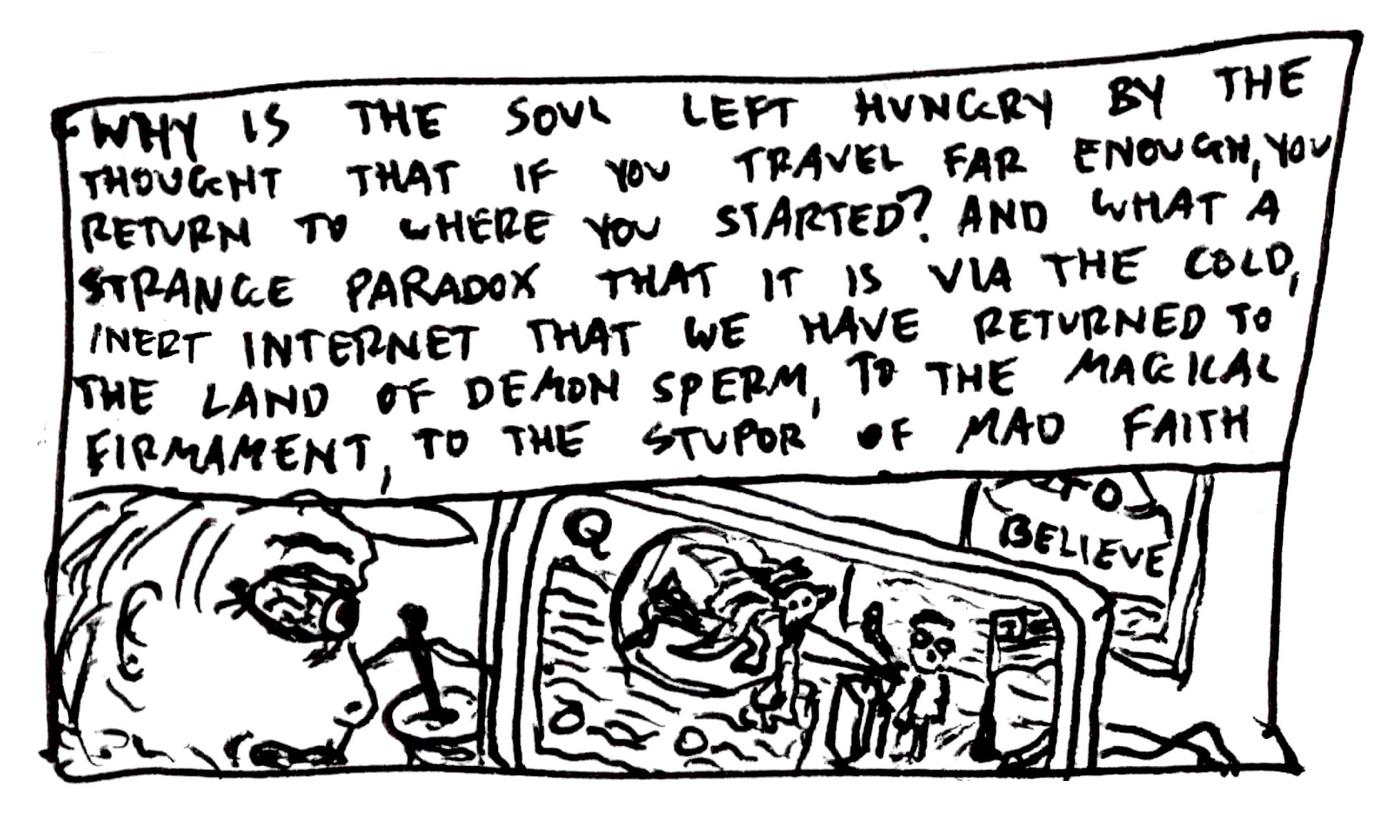 WHY IS THE SOUL LEFT HUNGRY BY THE
THOUGHT THAT IF YOU TRAVEL FAR ENOUGH, YOU
RETURN TO WHERE YOU STARTED? AND WHAT A
STRANGE PARADOX THAT IT IS VIA THE COLD,
INERT INTERNET THAT WE HAVE RETURNED TO
THE LAND OF DEMON SPERM, TO THE MAGICAL
FIRMAMENT, TO THE STUPOR OF MAD FAITH
Q
TO
BELIEVE